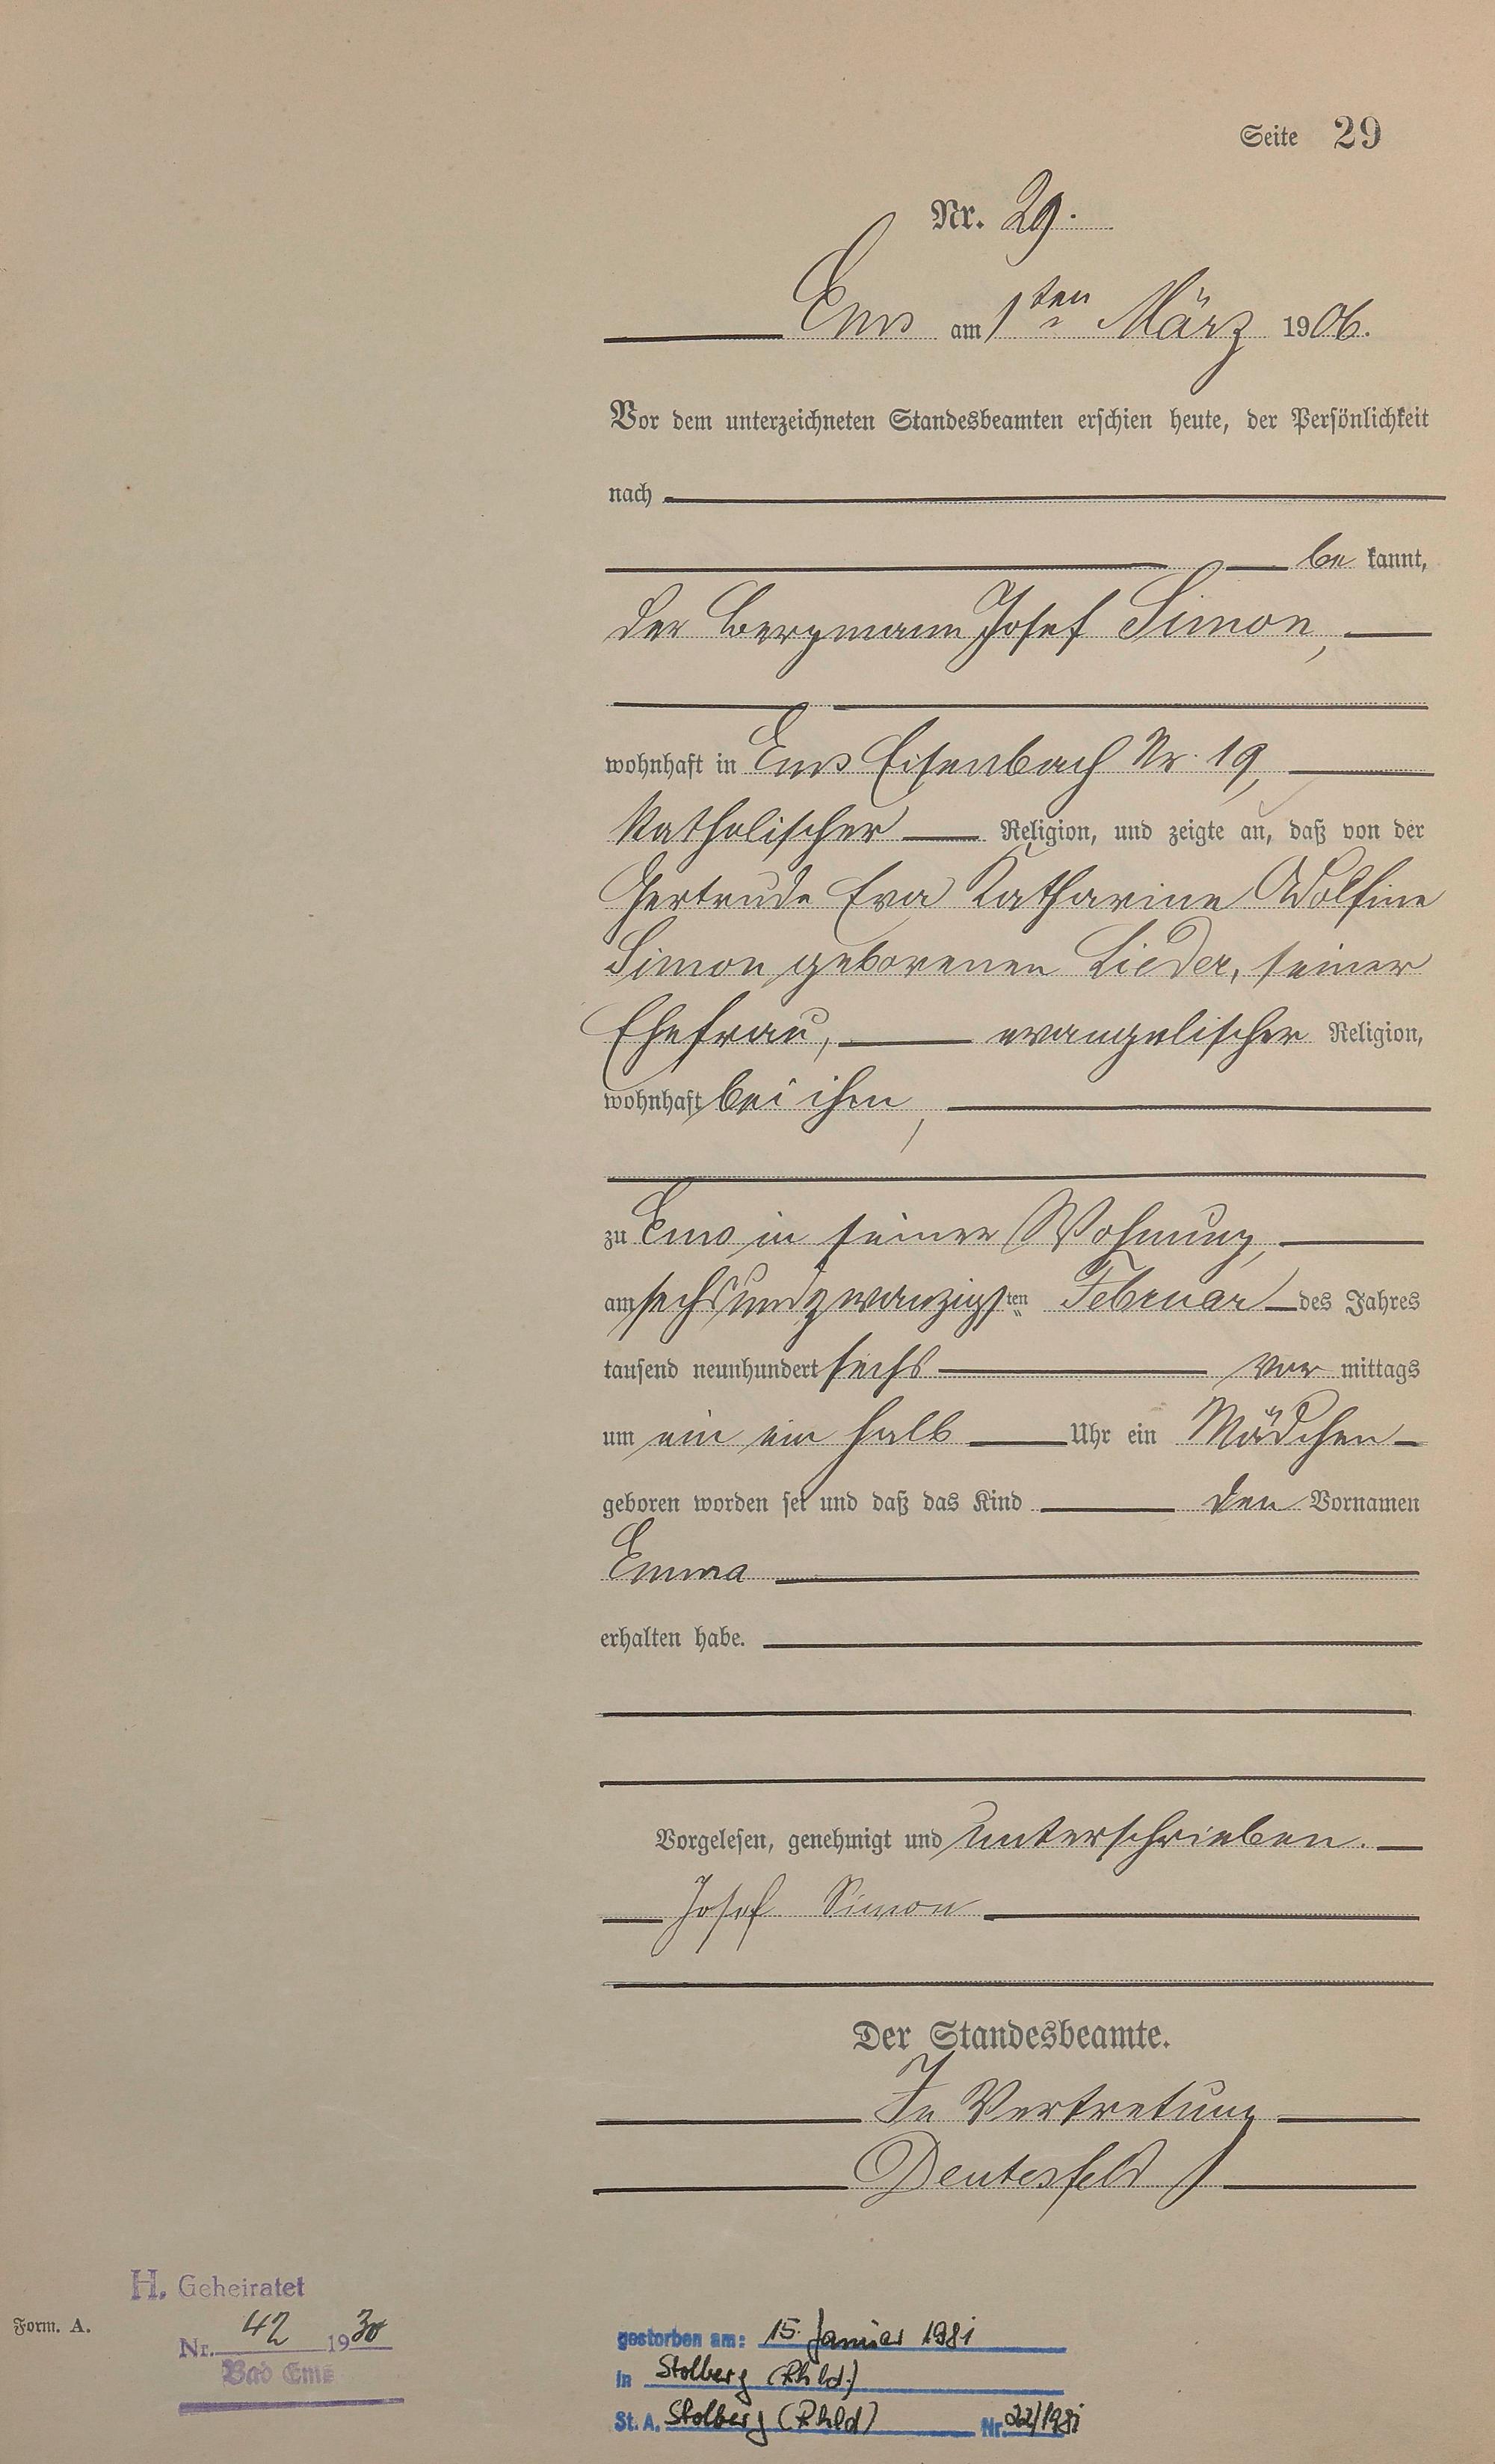 Seite 29
Nr. 29.
Ems am 1ten März 1906.
Vor dem unterzeichneten Standesbeamten erschien heute, der Persönlichkeit
nach
be kannt,
der Bergmann Josef Simon,
wohnhaft in Ems Eisenbach Nr. 19,
katholischer Religion, und zeigte an, daß von der
Gertrude Eva Katharine Adolfine
Simon geborenen Lieder, seiner
Ehefrau, evangelischer Religion,
wohnhaft bei ihm,
zu Ems in seiner Wohnung,
am sechsundzwanzigsten Februar des Jahres
tausend neunhundert sechs vor mittags
um ein ein halb Uhr ein Mädchen
geboren worden sei und daß das Kind den Vornamen
Emma
erhalten habe.
Vorgelesen, genehmigt und unterschrieben.
Josef Simon
Der Standesbeamte.
In Vertretung
Deutesfeld
H. Geheiratet
Form. A.
Nr. 42 1930
Bad Ems
gestorben am: 15. Januar 1981
in Stolberg (Rhld.)
St. A. Stolberg (Rhld) Nr. 22/1981